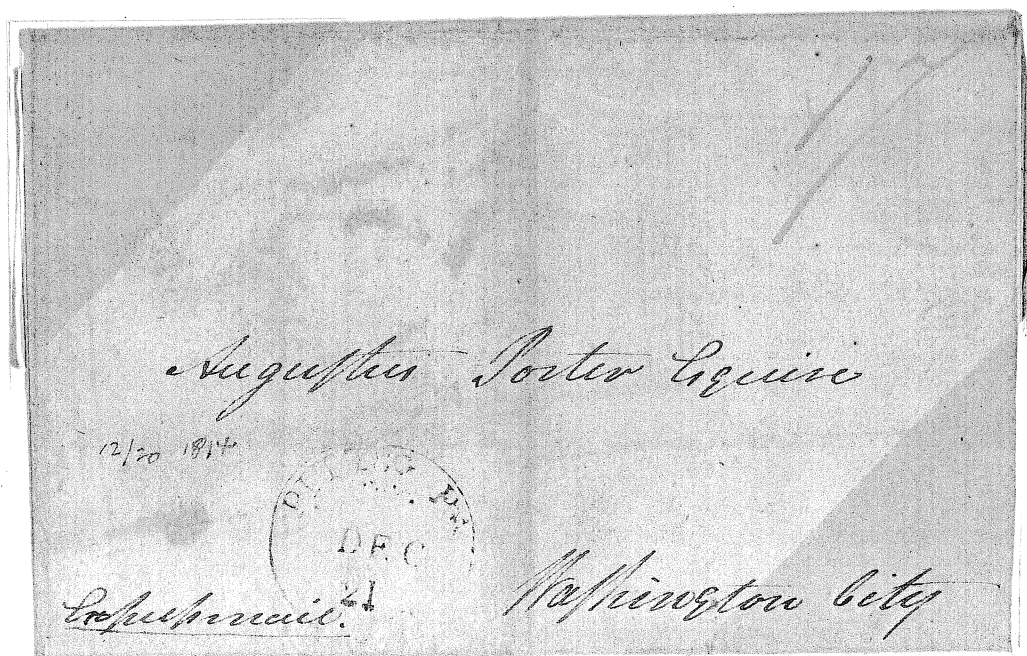 17
Auguſtus Porter Esquire
12/20 1814
DEC
21
Expreſsmail.
Waſhington City